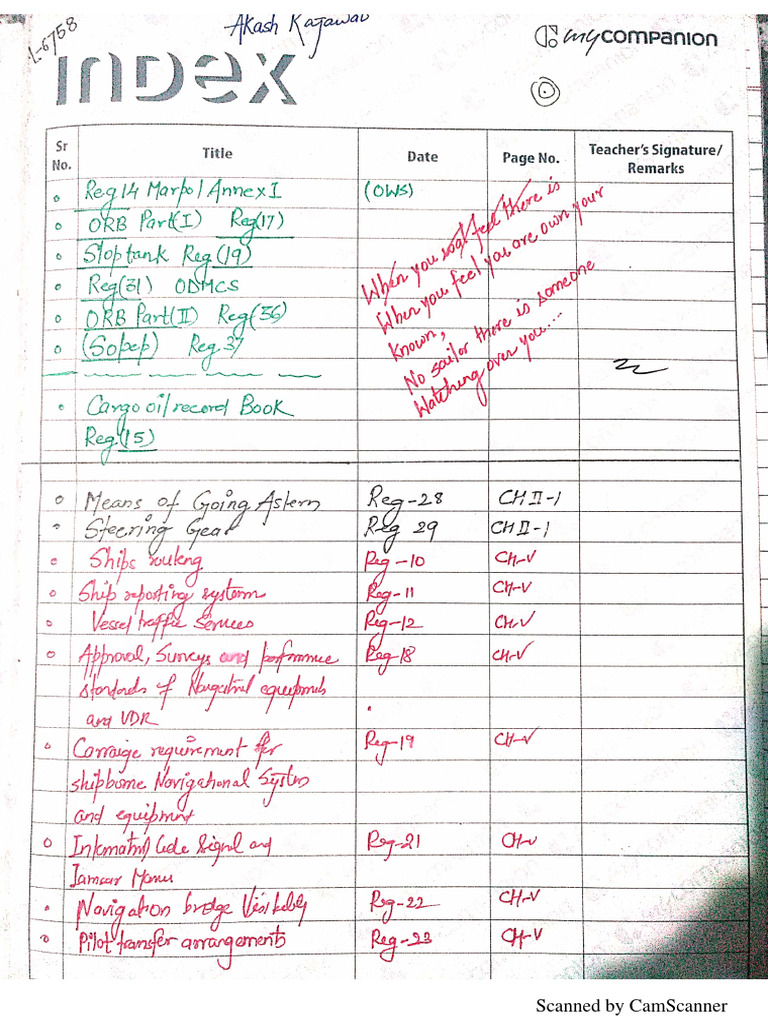 L-6758
Akash Kajawar
mycompanion
INDEX
Sr No. Title Date Page No. Teacher's Signature/ Remarks
Reg 14 Marpol Annex I (OWS)
ORB Part(I) Reg(17)
Sloptank Reg (19)
Reg(31) ODMCS
ORB Part(II) Reg(36)
(Sopep) Reg.37
When you feel there is
When you feel you are own your
known,
No sailor there is someone
Watching over you....
Cargo oil record Book
Reg.(15)
Means of Going Astern Reg-28 CH II-1
Steering Gear Reg 29 CH II-1
Ships routeng Reg-10 CH-V
Ship reporting system Reg-11 CH-V
Vessel traffic Services Reg-12 CH-V
Approval, Surveys and performance Reg-18 CH-V
standards of equipments
and VDR
Carraige requirement for Reg-19 CH-V
shipborne Navigational System
and equipment
Code Signal and Reg-21 CH-V
Navigation bridge Visibility Reg-22 CH-V
Pilot transfer arrangements Reg-23 CH-V
Scanned by CamScanner